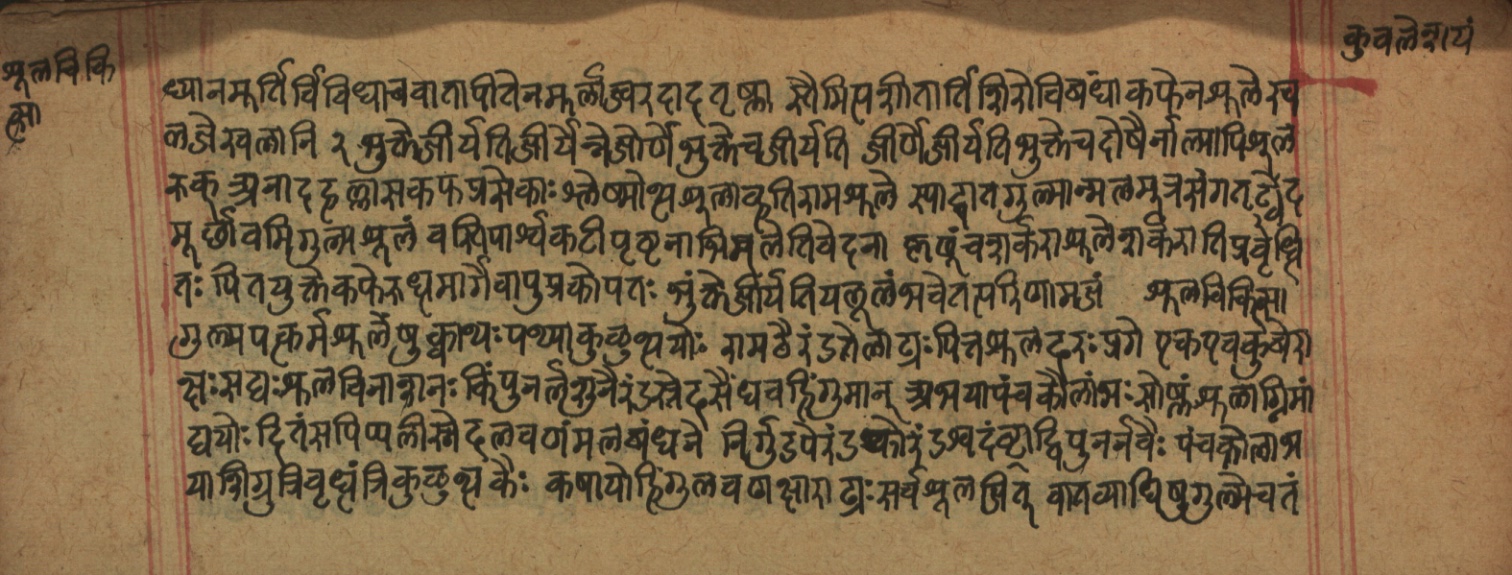 शूलचिकि
त्सा
कुवलेशयं
ध्यानमूर्तिर्विविधाचवातापीतेनमूर्छाज्वरदाहतृष्णा स्तैमित्यशीतार्तिशिरोविबंधाकफेनशूलेरुच
लजेरवलानि २ भुक्तेजीर्यतिजीर्यन्नेजीर्णेभुक्तेचजीर्यति जीर्णेजीर्यतिभुक्तेचदोषैर्नाल्पापिशूल
रुक् अनाहहृल्लासकफप्रसेकाः श्लेष्मोत्थशूलाकृतिरामशूले स्याद्वातगुल्मान्मलमूत्रसंगतृट्स्वेद
मूर्छावमिगुल्मशूलं वस्तिपार्श्वकटीपृष्ठनाभिमूलेतिवेदना कृष्णंचशर्कराशूलेशर्करातिप्रवृद्धि
तः पितयुक्तेकफेरुद्धमार्गेवापुप्रकोपतः भुंक्तेजीर्यतियछूलंभवेतत्परिणामजं शूलचिकित्सा
गुल्मपत्कर्मशूलेषुक्वाथ्यःपथ्याकुळुत्थयोः रामठैरंडतेलाढ्यःपित्तशूलहरःप्रगे एकएवकुबेरा
क्षःसद्यःशूलविनाशनः किंपुनर्लशुनैरंडस्वेदसैंधवहिंगुमान् अभयापंचकौलांभःसोष्णंशूलाग्निमां
द्ययोः हितंसपिप्पलीस्वेदलवणंमलबंधने निर्गुडपेरंडश्योरंडश्वदंष्ट्राद्विपुनर्नवैः पंचकोलाभ
याशिग्रुत्रिवृध्धंत्रिकुळुत्थकैः कषायोहिंगुलवणक्षाराढ्यःसर्वशूलजित् वातव्याधिषुगुल्मेचतं